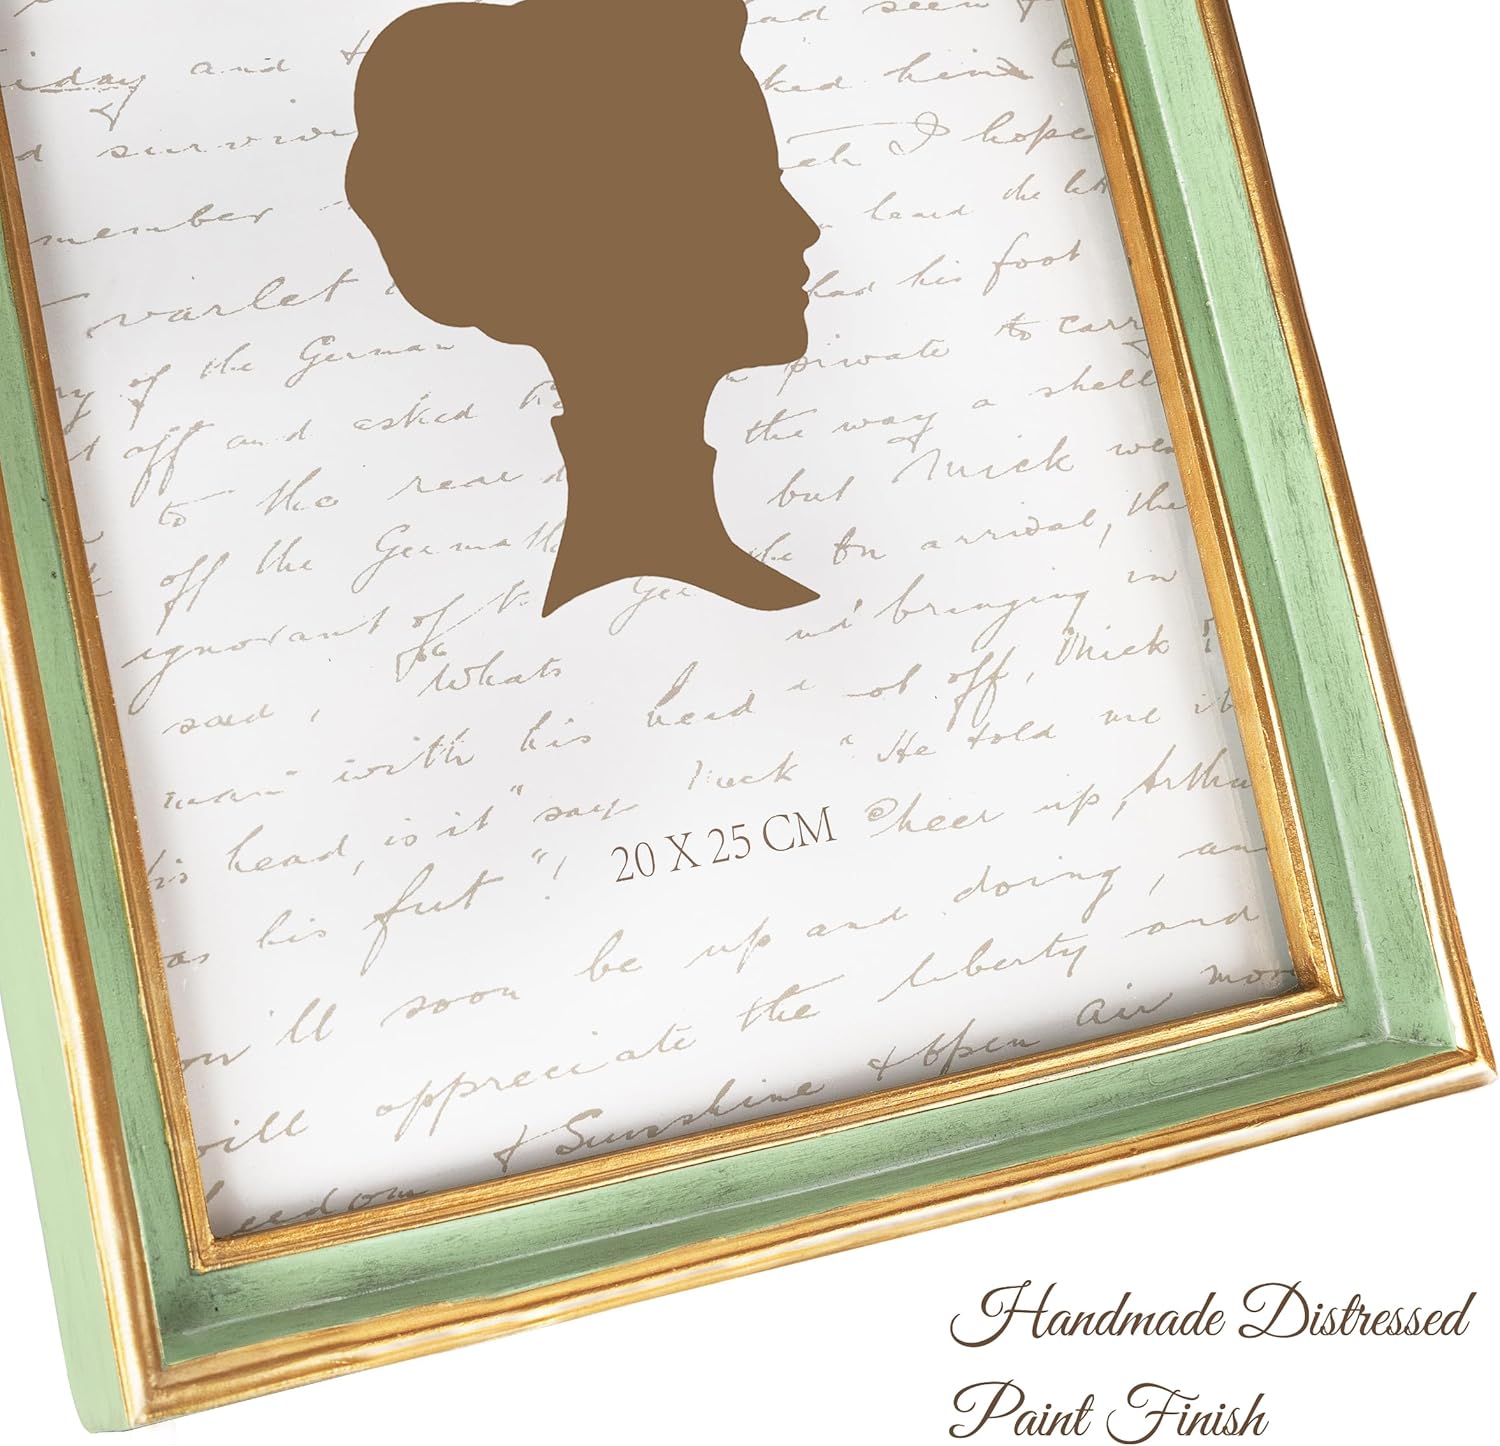 had seen
iday and
ked him
d survivi
I hope
member
heard the
varlet
had his foot
of the German
private to carry
off and asked
the way a shell
to the rear
but Mick wen
off the German
on arrival, the
ignorant of
and bringing in
said, "Whats
man with his head
ot off, Mick
his head, is it" says Mick "He told me it
as his feet"!
20 X 25 CM
Cheer up, Arthu
will soon be up and doing, an
will appreciate the liberty and
& Sunshine & open air
eedom
Handmade Distressed
Paint Finish